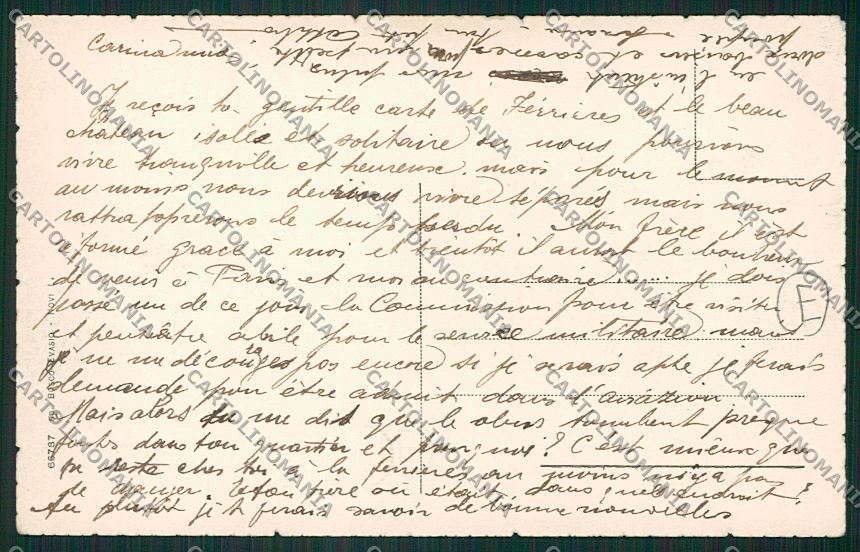 Carina mia,
Je reçois ta gentille carte de Ferrieres et le beau
château isolée et solitaire ou nous pourions
vivre tranquille et heureuse, mais pour le moment
au moins nous devrions vivre séparés mais nous
rattrapperons le temps perdu. Mon frère s'est
réformé grace à moi et bientôt il aurat le bonheur
de venir à Paris et moi au contraire ..... je dois
passé un de ce jour la Commission pour être visite
et peutêtre abile pour le service militaire mais
je ne me décourages pas encore si je serais apte je ferais
demande pour être admit dans l'aviazion.
Mais alors tu me dit que le obus tombent presque
touts dans ton quartier et pourquoi? C'est mieux que
tu reste ches toi à la ferrieres au moins n'iya pas
de danger. Et ton frère où était dans quel endroit?
Au plutôt je te ferais savoir de bonne nouvelles
E
66787 BOSCO GEVASIA - NOVI
CARTOLINOMANIA